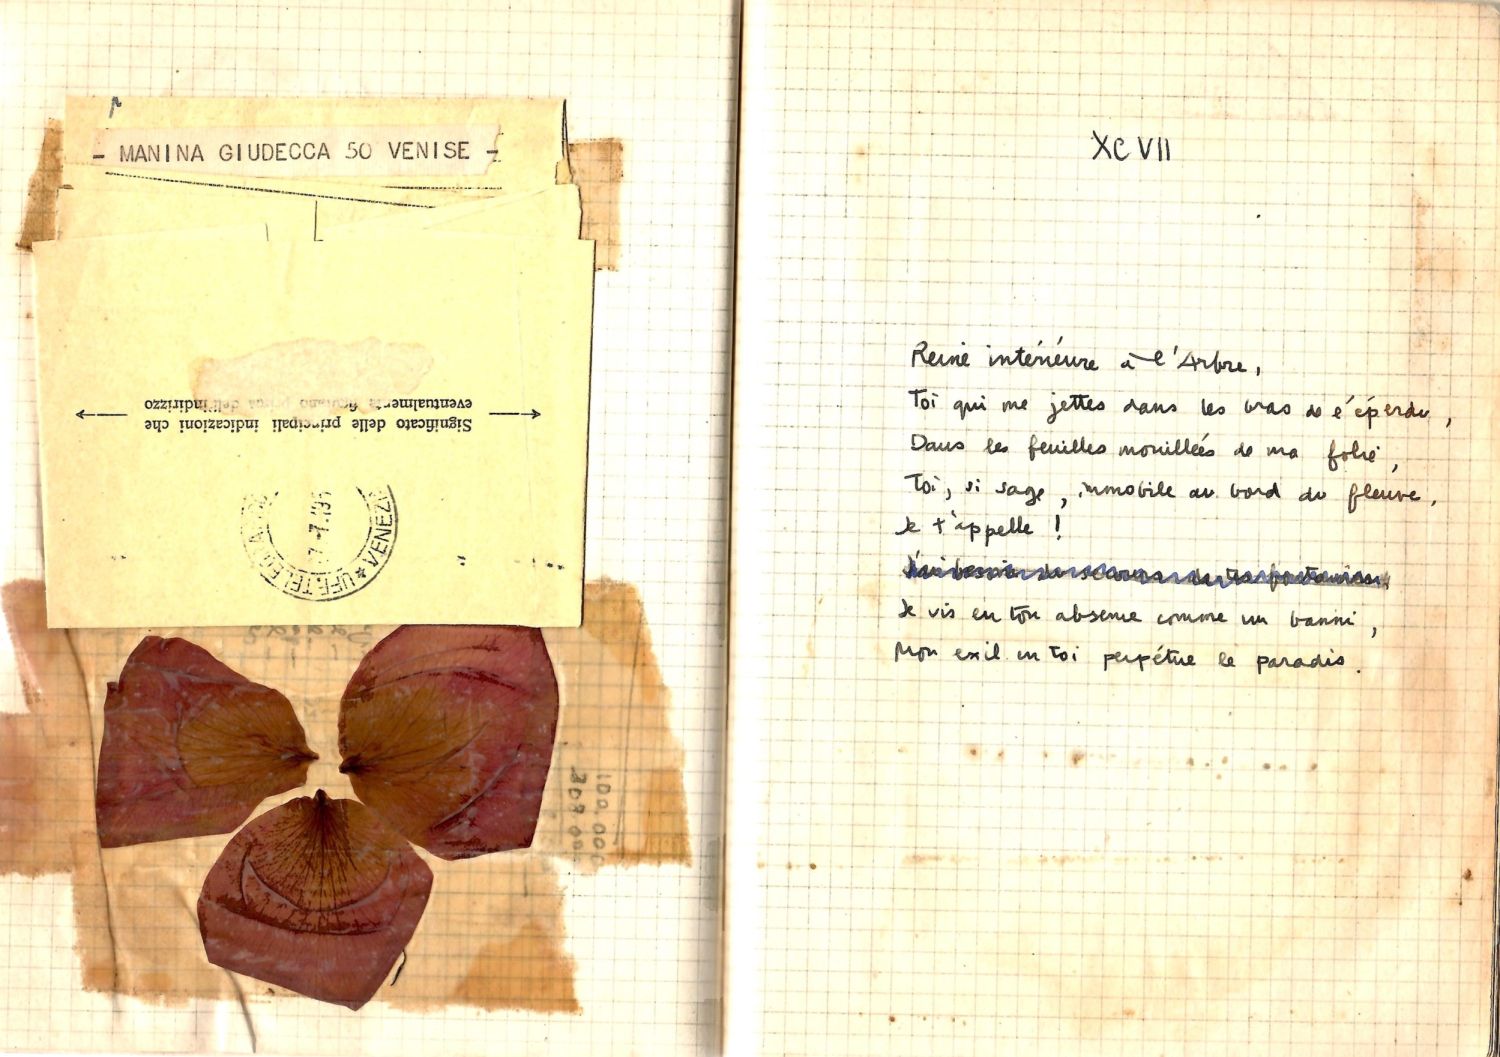 - MANINA GIUDECCA 50 VENISE -
Significato delle principali indicazioni che
eventualmente dell'indirizzo
VENEZIA
101.000
XCVII
Reine intérieure à l'Arbre,
Toi qui me jettes dans les bras de l'éperdu,
Dans les feuilles mouillées de ma folie,
Toi, si sage, immobile au bord du fleuve,
Je t'appelle !
Je vis en ton absence comme un banni,
Mon exil en toi perpétue le paradis.